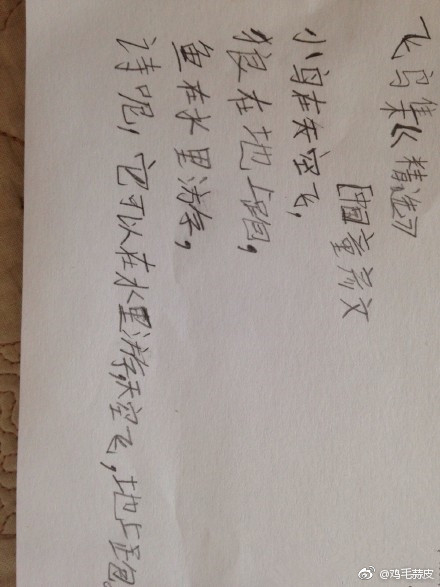 飞鸟集《精选》
[中国]
小鸟在天空飞,
狼在地上跑,
鱼在水里游,
诗呢,它可以在水里游,天空飞,地上跑。
@鸡毛蒜皮